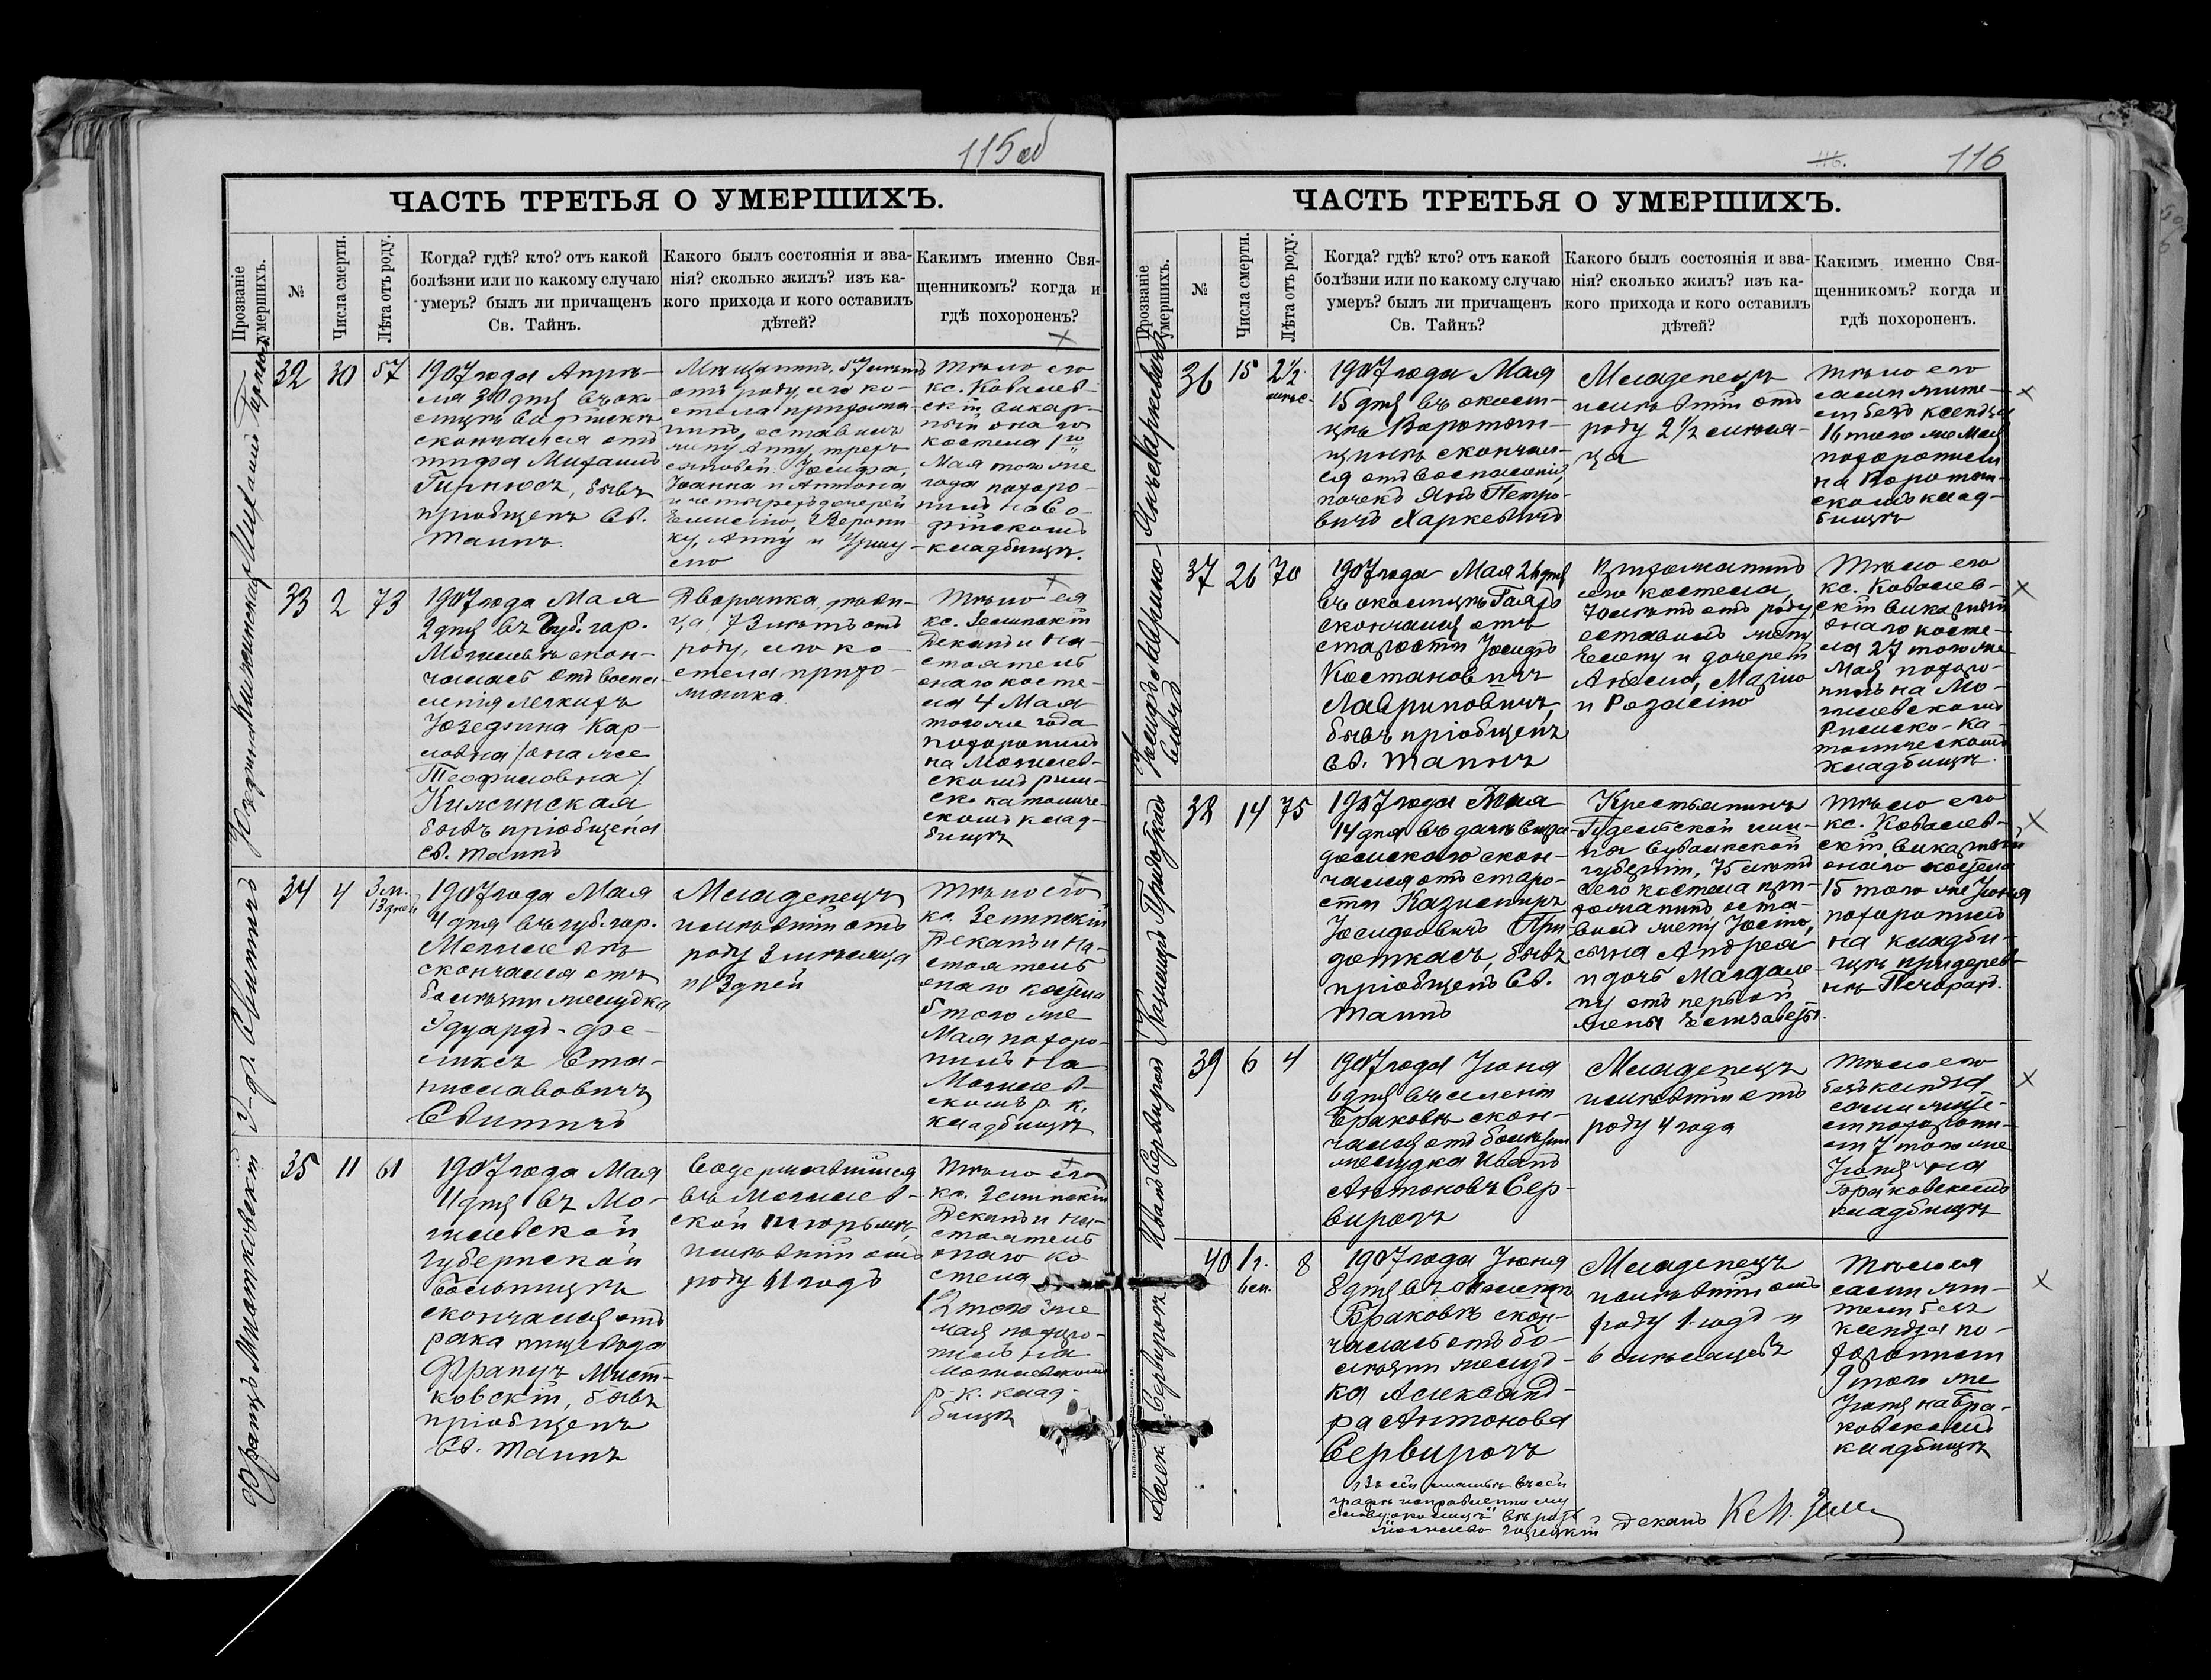 115 об
ЧАСТЬ ТРЕТЬЯ О УМЕРШИХЪ.
Прозваніе умершихъ.
№
Числа смерти.
Лѣта отъ роду.
Когда? гдѣ? кто? отъ какой
болѣзни или по какому случаю
умеръ? былъ ли причащенъ
Св. Тайнъ.
Какого былъ состоянія и зва-
нія? сколько жилъ? изъ ка-
кого прихода и кого оставилъ
дѣтей?
Какимъ именно Свя-
щенникомъ? когда и
гдѣ похороненъ?
32
30
57
1907 года Апрѣ-
ля 30 дня въ око-
скончался отъ
тифа Михаилъ
Гирнюсъ, бывъ
пріобщенъ Св.
Таинъ
Мѣщанинъ, 57 лѣтъ
отъ роду, сего ко-
стела прихожа-
нинъ, оставилъ
жену Анну, трехъ
сыновей: Іосифа,
Іоанна и Антона
и четырехъ дочерей
ку, Анну и Уршу-
лю
Тѣло его
кс. Ковалев-
скій викар-
ный онаго
костела 1го
Мая того же
года похоро-
кладбищѣ.
33
2
73
1907 года Мая
2 дня въ губ. гор.
Могилевѣ скон-
чалась отъ воспа-
ленія легкихъ
Юзефина Кар-
ловна /она же
Теофиловна/
бывъ пріобщена
Св. Таинъ
Дворянка, дѣви-
ца, 73 лѣтъ отъ
роду, сего ко-
стела прихо-
жанка
Тѣло ея
кс. Землискій
Деканъ и На-
стоятель
онаго косте-
ла 4 Мая
того же года
похоронилъ
на Могилев-
скомъ рим-
ско католиче-
скомъ клад-
бищѣ
34
4
3 м.
13 дней
1907 года Мая
4 дня въ губ. гор.
Могилевѣ
скончался отъ
болѣзни желудка
Эдуардъ-Фе-
ликсъ Ста-
ниславовичъ
Младенецъ
имѣвшій отъ
роду 3 мѣсяца
и 13 дней
Тѣло его
кс. Землискій
Деканъ и На-
стоятель
онаго костела
6 того же
Мая похоро-
нилъ на
Могилев-
скомъ р. к.
кладбищѣ
35
11
61
1907 года Мая
11 дня въ Мо-
гилевской
губернской
больницѣ
скончался отъ
рака пищевода
Францъ Мист-
ковскій, бывъ
пріобщенъ
Св. Таинъ
Содержавшійся
въ Могилев-
ской тюрьмѣ,
имѣвшій отъ
роду 61 годъ
Тѣло его
кс. Землискій
Деканъ и На-
стоятель
онаго ко-
стела
12 того же
Мая похоро-
нилъ на
Могилевскомъ
р-к. клад-
бищѣ
116
ЧАСТЬ ТРЕТЬЯ О УМЕРШИХЪ.
Прозваніе умершихъ.
№
Числа смерти.
Лѣта отъ роду.
Когда? гдѣ? кто? отъ какой
болѣзни или по какому случаю
умеръ? былъ ли причащенъ
Св. Тайнъ?
Какого былъ состоянія и зва-
нія? сколько жилъ? изъ ка-
кого прихода и кого оставилъ
дѣтей?
Какимъ именно Свя-
щенникомъ? когда и
гдѣ похороненъ.
Янъ Харкевичъ
36
15
2½
мѣс.
1907 года Мая
15 дня въ околи-
цѣ Воротын-
щинѣ скончал-
ся отъ воспаленія
почекъ Янъ Петро-
вичъ Харкевичъ
Младенецъ
имѣвшій отъ
роду 2½ мѣся-
ца
Тѣло его
сами жите-
ли безъ ксендза
16 того же Мая
похоронили
на Воротын-
скомъ клад-
бищѣ
Іосифъ Лаврино-
вичъ
37
26
70
1907 года Мая 26 дня
скончался отъ
старости Іосифъ
Костановичъ
Лавриновичъ,
бывъ пріобщенъ
Св. Таинъ
Прихожанинъ
сего костела,
70 лѣтъ отъ роду,
оставилъ жену
Елену и дочерей
Анелю, Марію
и Розалію
Тѣло его
кс. Ковалев-
скій викарный
онаго косте-
ла 27 того же
Мая похоро-
нилъ на Мо-
гилевскомъ
Римско-Ка-
толическомъ
кладбищѣ.
38
14
75
1907 года
скон-
чался отъ старо-
сти Казимиръ
Іосифовичъ При-
доткасъ, бывъ
пріобщенъ Св.
Таинъ
Крестьянинъ
ны Сувалкской
губерніи, 75 лѣтъ
сего костела при-
хожанинъ оста-
вилъ жену
сына Андрея
и дочь Магдале-
ну отъ первой
жены Елизаветы.
Тѣло его
кс. Ковалев-
скій викарный
онаго костела
15 того же Іюня
похоронилъ
на кладби-
щѣ при дерев-
39
6
4
1907 года Іюня
6 дня въ селеніи
Браковѣ скон-
чался отъ болѣзни
желудка Иванъ
Антоновъ Сер-
вирогъ
Младенецъ
имѣвшій отъ
роду 4 года
Тѣло его
безъ ксендза
сами жите-
ли похорони-
ли 7 того же
Іюня на
Браковскомъ
кладбищѣ
40
1 г.
6 м.
8
1907 года Іюня
Браковѣ скон-
чалась отъ бо-
лѣзни желуд-
ка Александ-
ра Антонова
Сервирогъ
Младенецъ
имѣвшій отъ
роду 1 годъ и
6 мѣсяцевъ
Тѣло ея
сами жи-
тели безъ
ксендза по-
хоронили
9 того же
Іюня на Бра-
ковскомъ
кладбищѣ
Деканъ